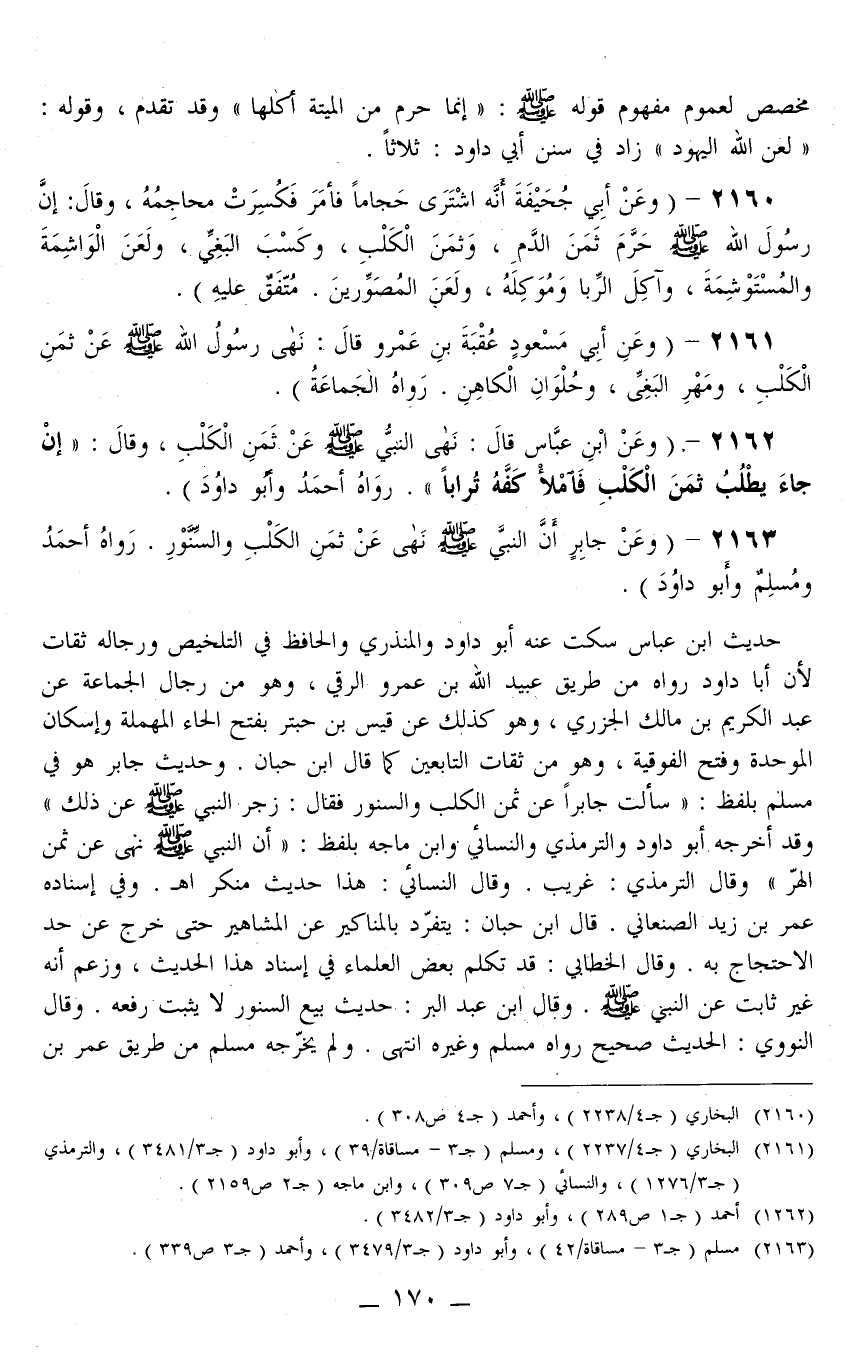 مخصص لعموم مفهوم قوله ﷺ : « إنما حرم من الميتة أكلها » وقد تقدم ، وقوله :
« لعن الله اليهود » زاد في سنن أبي داود : ثلاثاً .
٢١٦٠ – ( وعَنْ أبي جُحَيْفَةَ أَنَّه اشْتَرَى حَجاماً فأمَرَ فَكُسِرَتْ محاجِمُهُ ، وقالَ: إنَّ
رسُولَ الله ﷺ حَرَّمَ ثَمَنَ الدَّمِ ، وَثمَنَ الْكَلْبِ ، وكَسْبَ البَغِيِّ ، ولَعَنَ الْوَاشِمَةَ
والمُسْتَوْشِمَةَ ، وآكِلَ الرِّبا وَمُوَكِلَهُ ، ولَعَنَ المُصَوِّرينَ . مُتّفَقٌ عليهِ ) .
٢١٦١ – ( وعَنِ أبي مَسْعودٍ عُقْبَةَ بنِ عَمْرو قالَ : نَهٰى رسولُ الله ﷺ عَنْ ثمَنِ
الْكَلْبِ ، ومَهْرِ البَغِىِّ ، وحُلْوَانِ الْكاهنِ . رَواهُ الْجَماعَةُ ) .
٢١٦٢ – ( وعَنْ ابْنِ عبَّاس قالَ : نَهٰى النبيُّ ﷺ عَنْ ثَمَنِ الْكَلْبِ ، وقالَ : « إنْ
جاءَ يطْلُبُ ثمَنَ الْكَلْبِ فَآمْلأْ كَفَّهُ تُراباً » . روَاهُ أحمَدُ وأبو داوُدَ ) .
٢١٦٣ – ( وعَنْ جابِرٍ أَنَّ النبيَّ ﷺ نَهٰى عَنْ ثمَنِ الكَلْبِ والسِّنَّوْرِ . رَواهُ أحمَدُ
ومُسلِمٌ وأَبو داوُدَ ) .
حديث ابن عباس سكت عنه أبو داود والمنذري والحافظ في التلخيص ورجاله ثقات
لأن أبا داود رواه من طريق عبيد الله بن عمرو الرقي ، وهو من رجال الجماعة عن
عبد الكريم بن مالك الجزري ، وهو كذلك عن قيس بن حبتر بفتح الحاء المهملة وإسكان
الموحدة وفتح الفوقية ، وهو من ثقات التابعين كما قال ابن حبان . وحديث جابر هو في
مسلم بلفظ : « سألت جابراً عن ثمن الكلب والسنور فقال : زجر النبي ﷺ عن ذلك »
وقد أخرجه أبو داود والترمذي والنسائي وابن ماجه بلفظ : « أن النبي ﷺ نهى عن ثمن
الهرّ » وقال الترمذي : غريب . وقال النسائي : هذا حديث منكر اهـ . وفي إسناده
عمر بن زيد الصنعاني . قال ابن حبان : يتفرّد بالمناكير عن المشاهير حتى خرج عن حد
الاحتجاج به . وقال الخطابي : قد تكلم بعض العلماء في إسناد هذا الحديث ، وزعم أنه
غير ثابت عن النبي ﷺ . وقال ابن عبد البر : حديث بيع السنور لا يثبت رفعه . وقال
النووي : الحديث صحيح رواه مسلم وغيره انتهى . ولم يخرّجه مسلم من طريق عمر بن
(٢١٦٠) البخاري ( جـ٢٢٣٨/٤ ) ، وأحمد ( جـ٤ ص٣٠٨ ) .
(٢١٦١) البخاري ( جـ٢٢٣٧/٤ ) ، ومسلم ( جـ٣ – مساقاة/٣٩ ) ، وأبو داود ( جـ٣٤٨١/٣ ) ، والترمذي
( جـ١٢٧٦/٣ ) ، والنسائي ( جـ٧ ص٣٠٩ ) ، وابن ماجه ( جـ٢ ص٢١٥٩ ) .
(١٢٦٢) أحمد ( جـ١ ص٢٨٩ ) ، وأبو داود ( جـ٣٤٨٢/٣ ) .
(٢١٦٣) مسلم ( جـ٣ – مساقاة/٤٢ ) ، وأبو داود ( جـ٣٤٧٩/٣ ) ، وأحمد ( جـ٣ ص٣٣٩ ) .
– ١٧٠ –